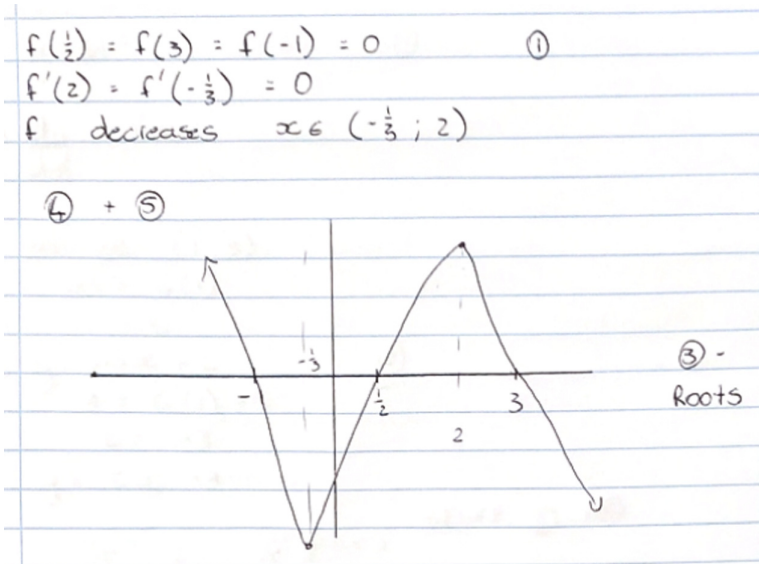 f(½) = f(3) = f(-1) = 0 ①
f'(2) = f'(-⅓) = 0
f decreases x ∈ (-⅓ ; 2)
④ + ⑤
-⅓
③ -
- ½ 3 Roots
2